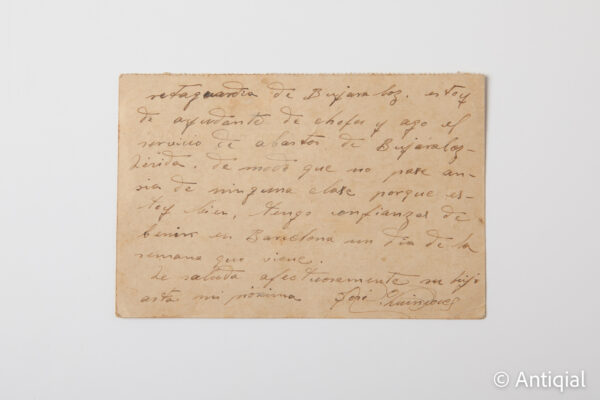 retaguardia de Bujaraloz. estoy
de ayudante de chofer y ago el
servicio de abastos de Bujaraloz-
Lérida. de modo que no pase an-
sia de ninguna clase porque es-
toy bien, tengo confianzas de
benir en Barcelona un dia de la
semana que viene.
Le saluda afectuosamente su hijo
asta mi próxima José
© Antiqial